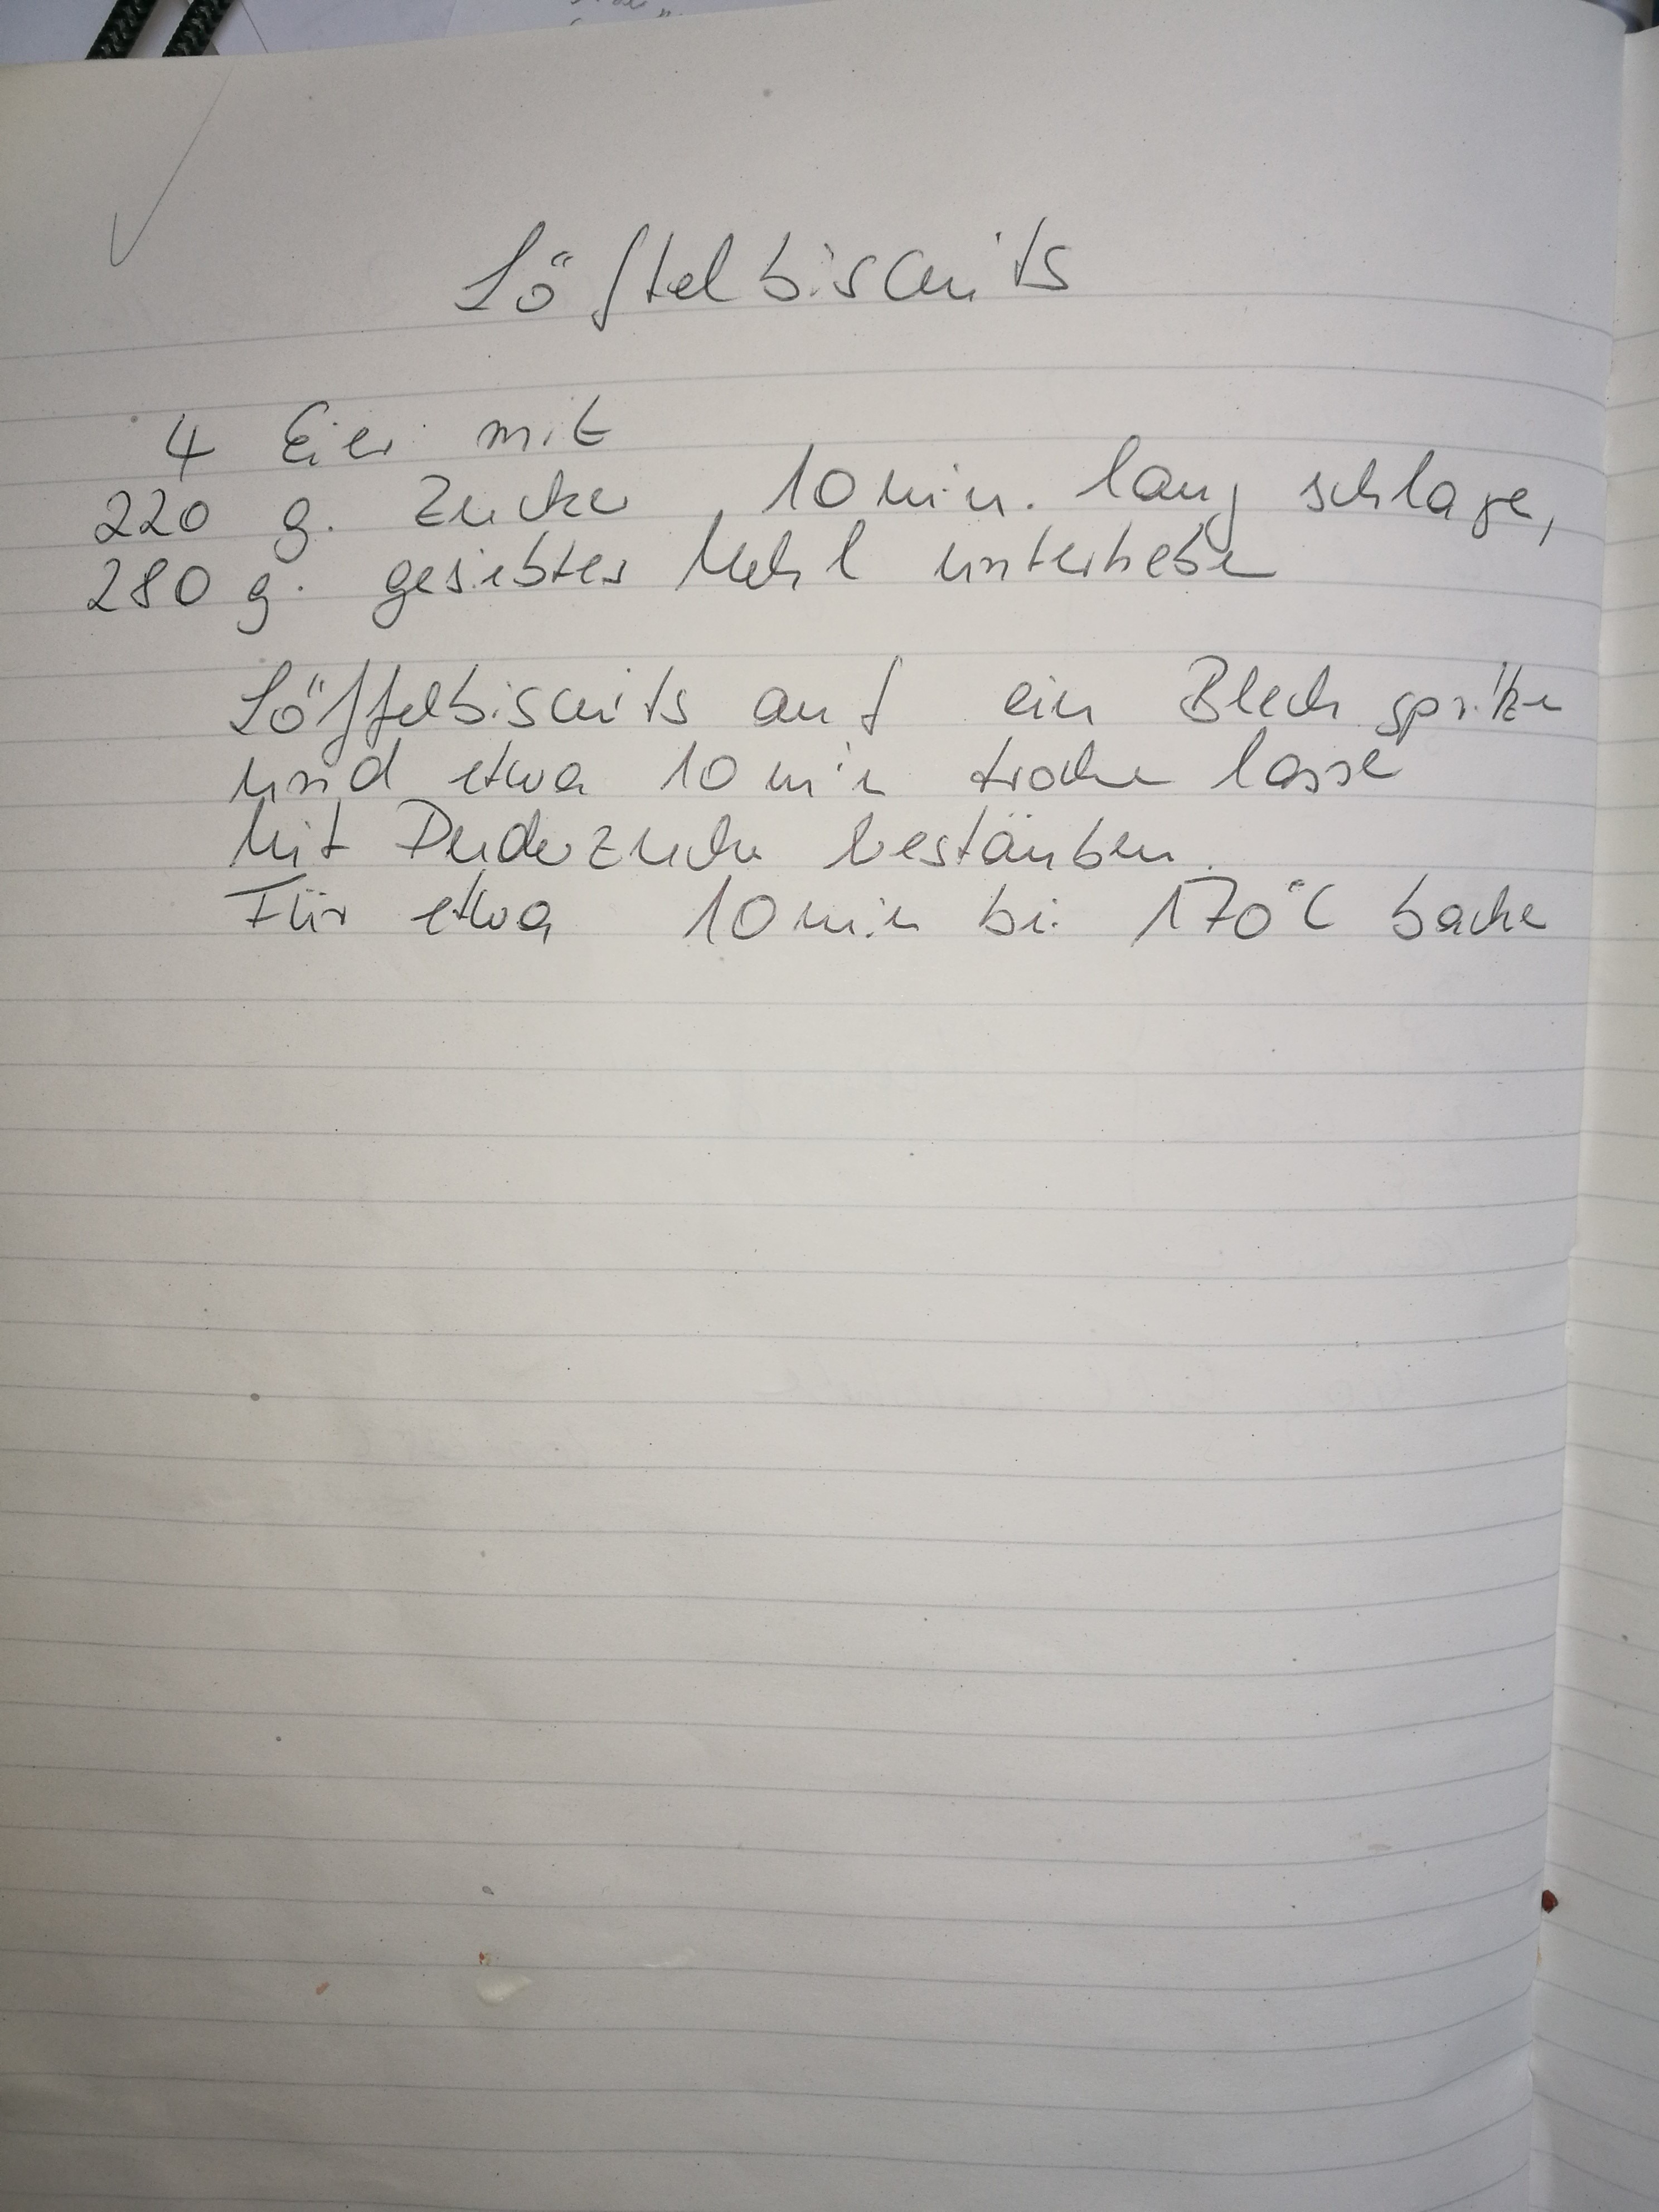 Löffelbiscuits
4 Eier mit
220 g. Zucker 10 min. lang schlagen,
280 g. gesiebtes Mehl unterheben
Löffelbiscuits auf ein Blech spritzen
und etwa 10 min trocken lassen
Mit Puderzucker bestäuben.
Für etwa 10 min bei 170°C backen